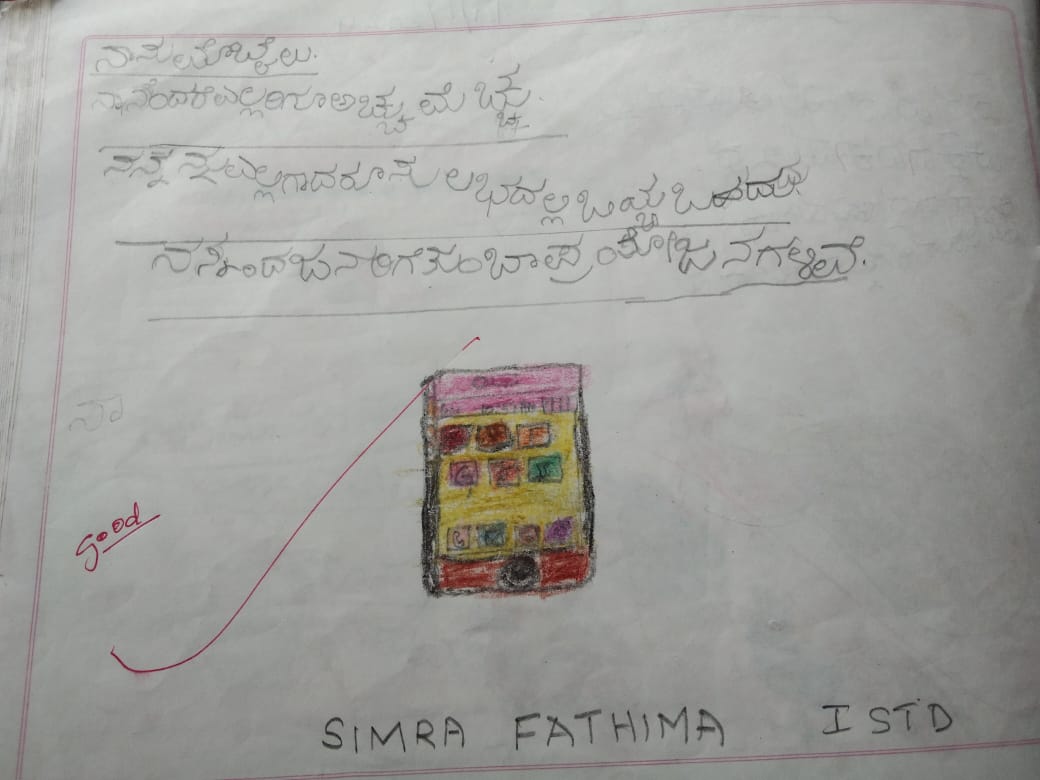 ನಾನು ಮೊಬೈಲು.
ನಾನೆಂದರೆ ಎಲ್ಲರಿಗೂ ಅಚ್ಚು ಮೆಚ್ಚು.
ನನ್ನನ್ನು ಎಲ್ಲಿಗಾದರೂ ಸುಲಭದಲ್ಲಿ ಒಯ್ಯ
ನನ್ನಿಂದ ಜನರಿಗೆ ತುಂಬಾ ಪ್ರಯೋಜನಗಳಿವೆ.
ನಾ
Good
SIMRA FATHIMA I STD